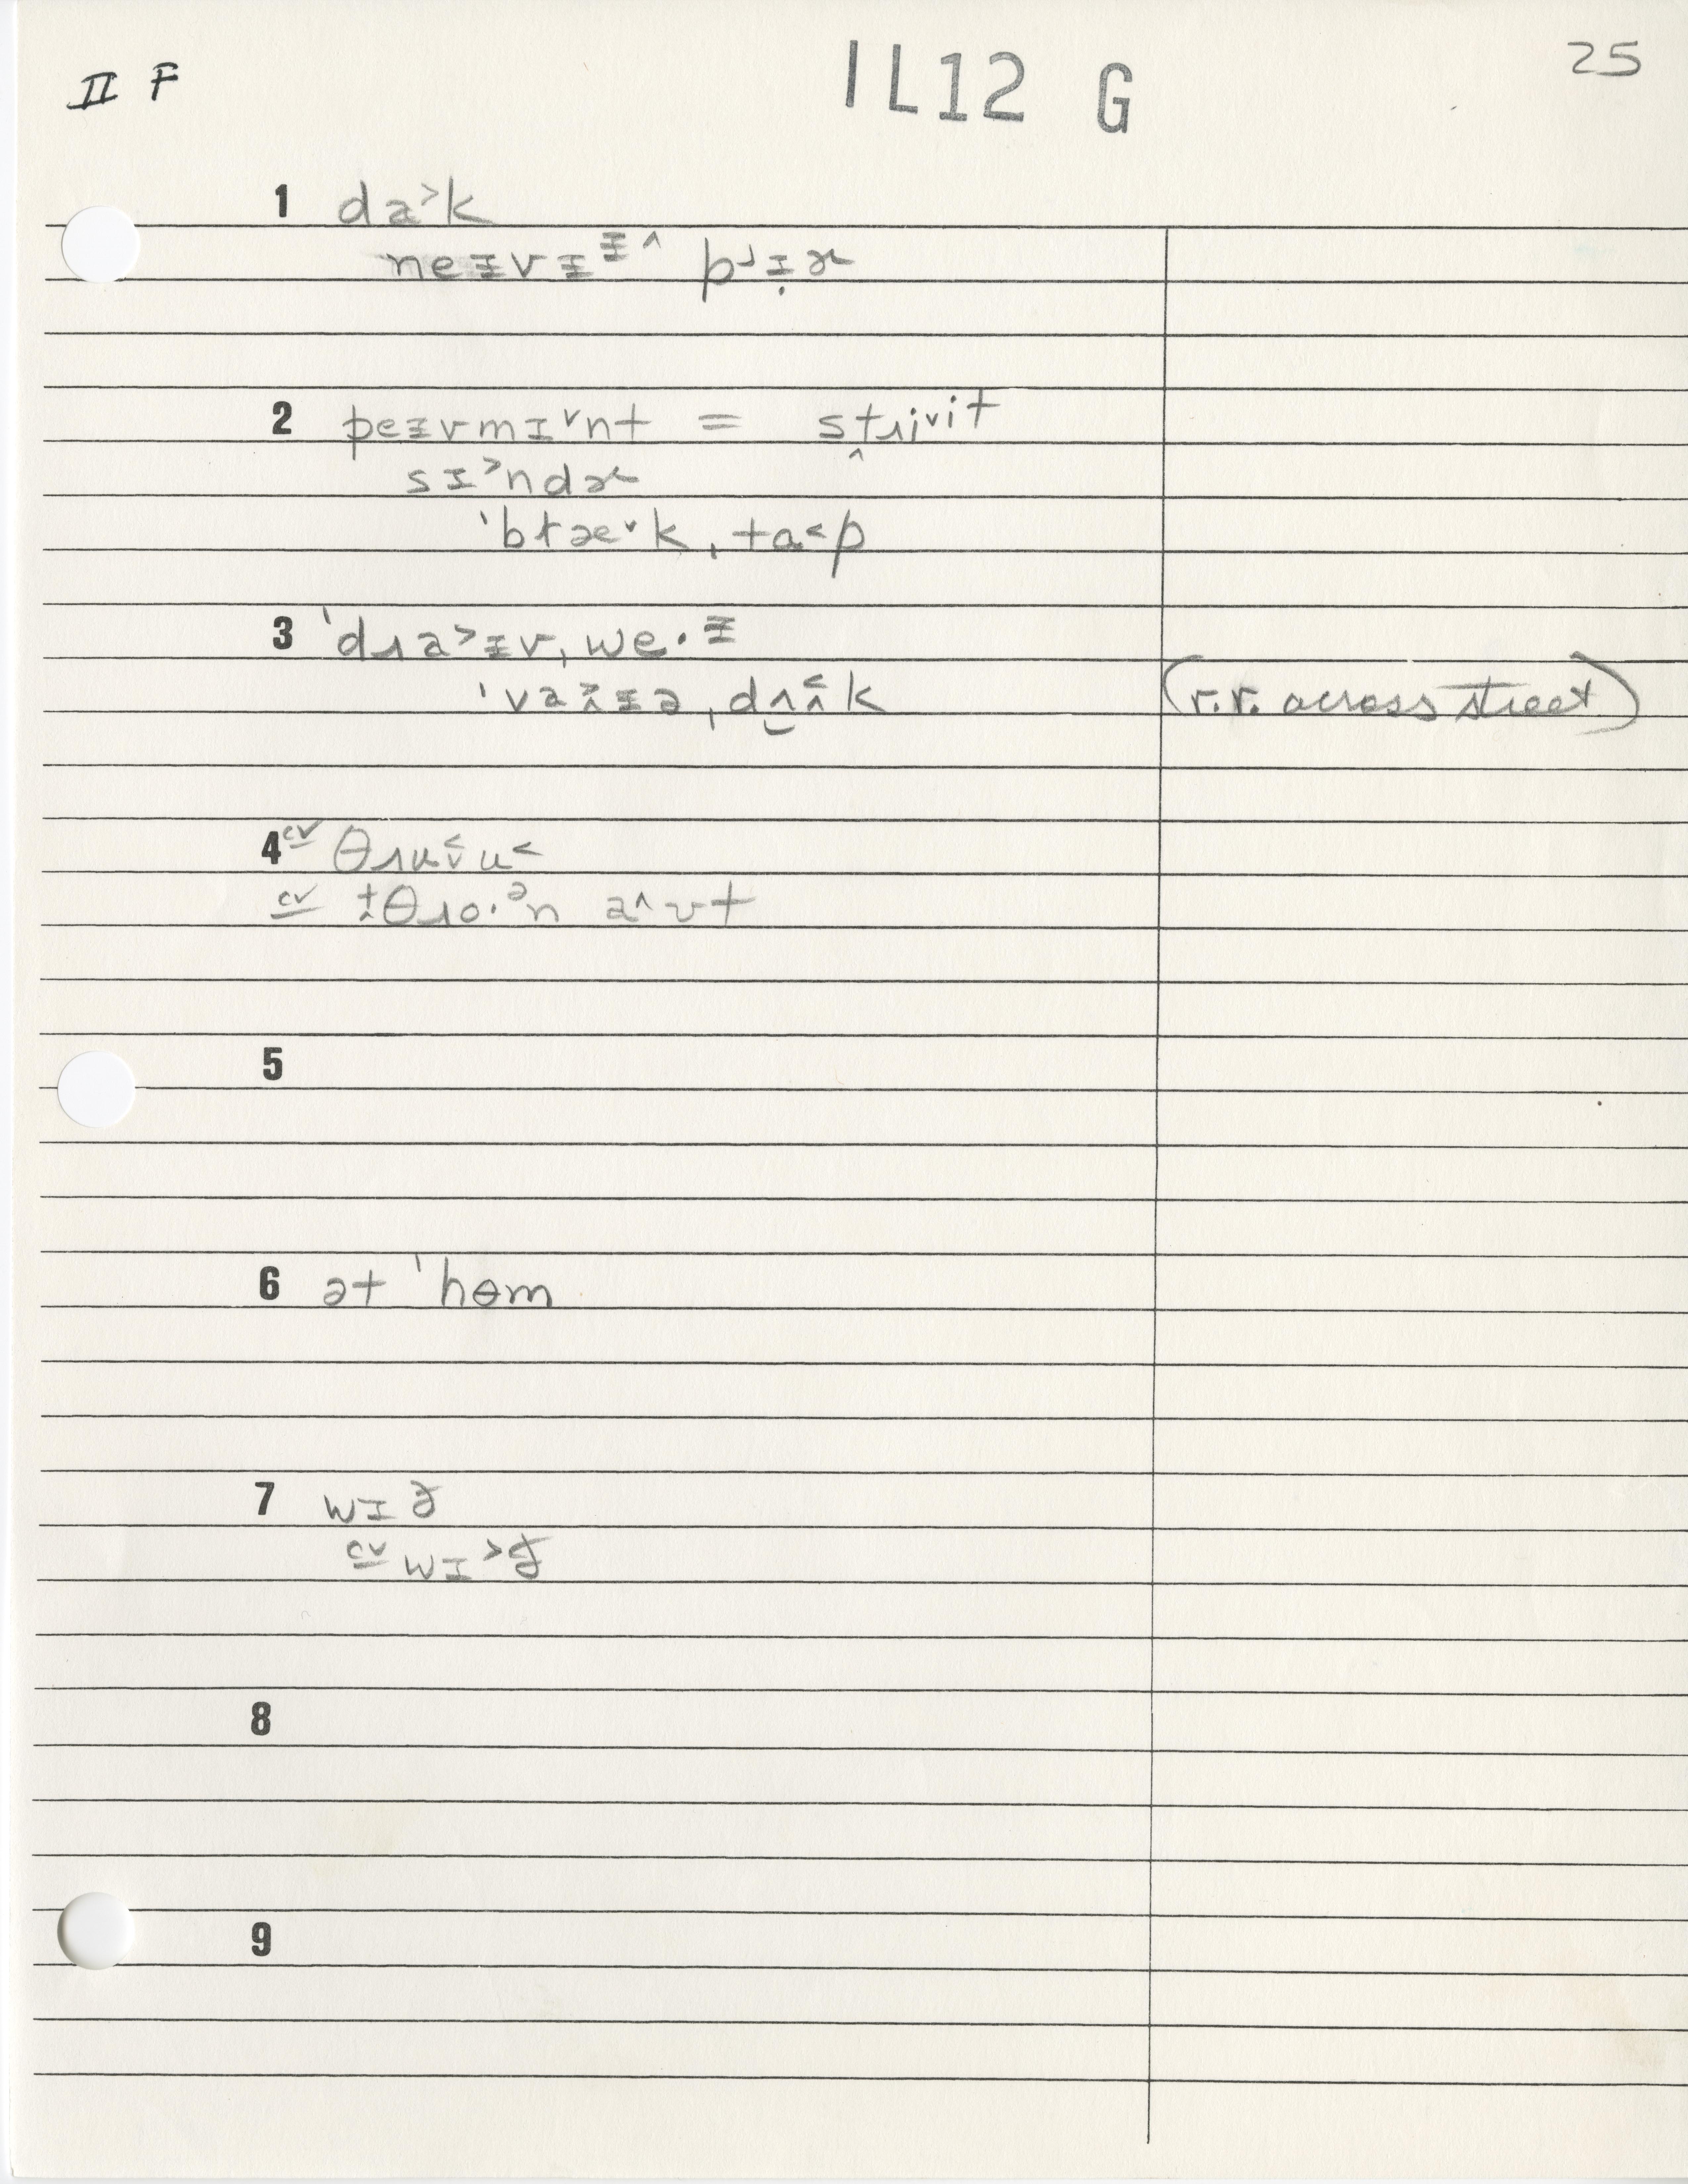 II F
1L12 G
25
1 da˃k
neɪ̵vɪ̵ᵻ˄ pᴶɪ̣ɚ
2 peɪ̵vmɪ˅nt = st̬ɹi˅it
sɪ˃ndɚ
ˈbɫæ˅k ˌta˂p
3 ˈdɹa˃ɪ̵vˌwe·ᵻ
ˈvaɪ̵ə ˌdʌk (r.r. across street)
4 cv θɹʉu˂
cv θɹo·ᵊn a˄ʊt
5
6 ət ˈhɵm
7 wɪð
cv wɪ˃ð
8
9